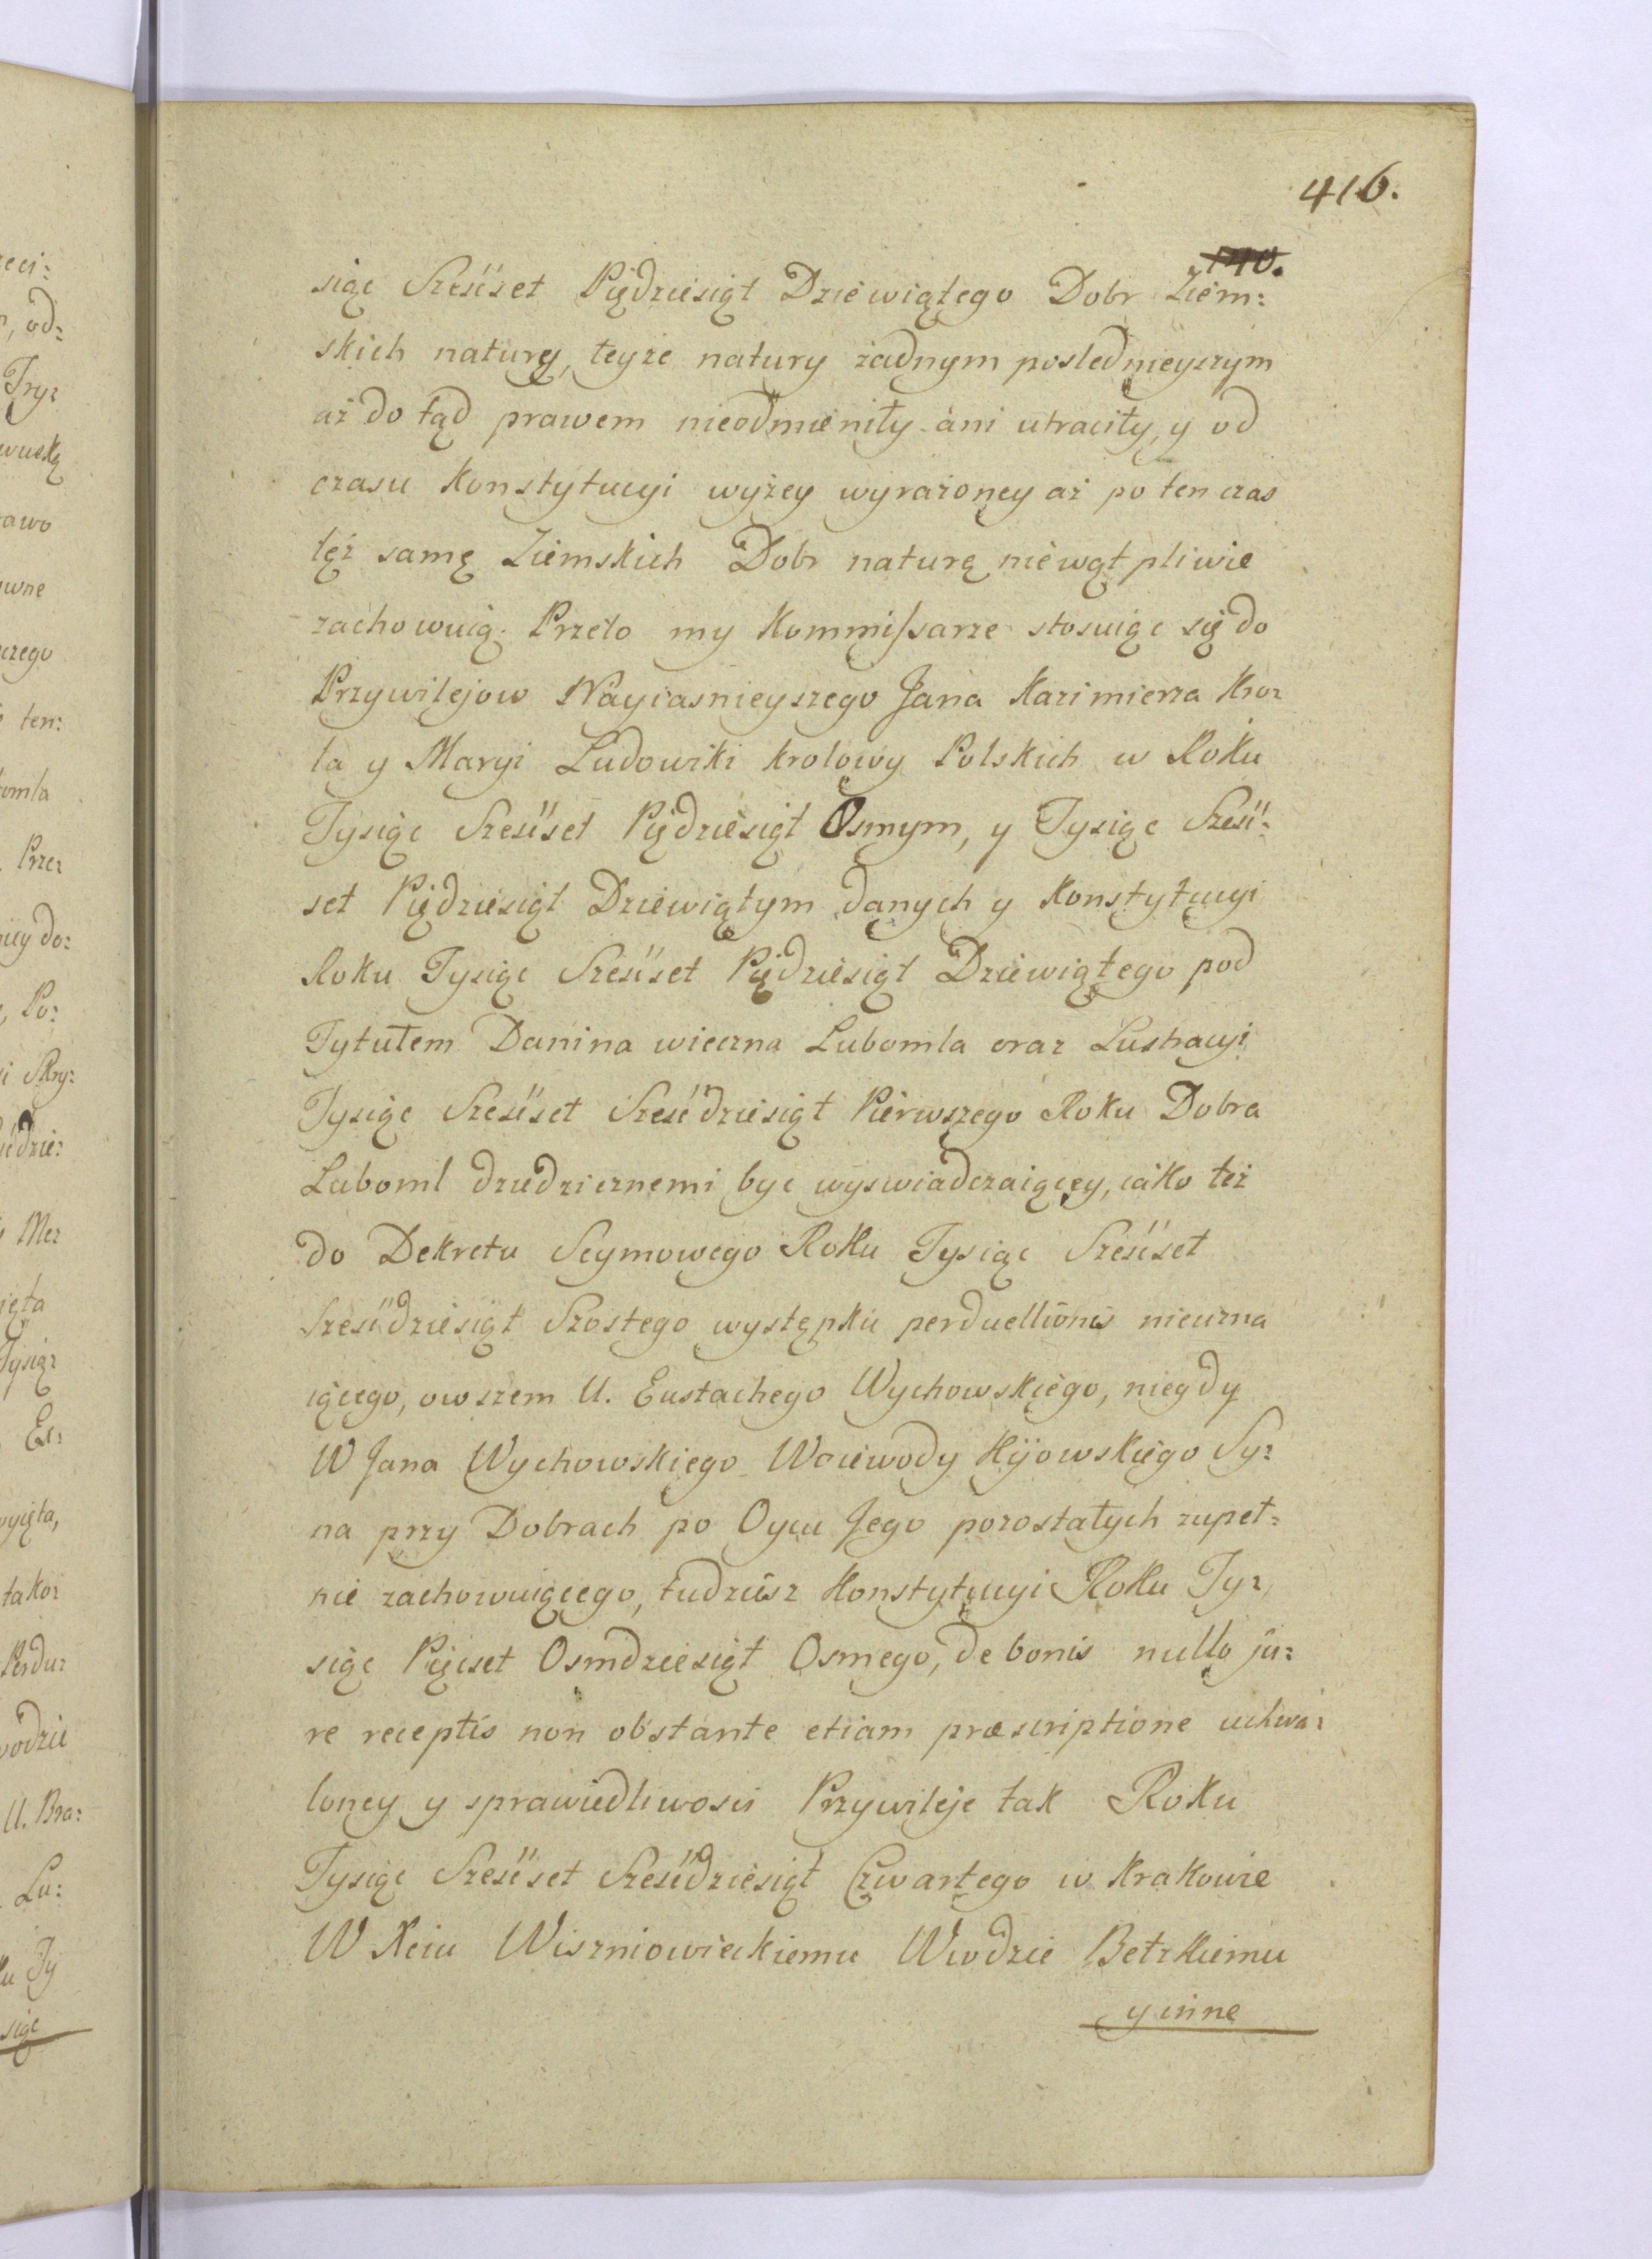 416.
140.
siąc Szesćset Pięzdziesiąt Dziewiątego Dobr Ziem:
skich naturę, teyże natury żadnym poslednieyszym
aż do tąd prawem nieodmieniły ani utraciły, y od
czasu Konstytucyi wyżey wyrażoney aż po ten czas
tęż samę Ziemskich Dobr naturę niewątpliwie
zachowuią. Przeto my Kommissarze stosuiąc się do
Przywilejow Nayiasnieyszego Jana Kazimierza Kro:
la y Maryi Ludowiki krolowy Polskich w Roku
Tysiąc Szesćset Pięдziesiąt Osmym, y Tysiąc Szesć:
set Piędziesiąt Dziewiątym danych y Konstytucyi
Roku Tysiąc Szesćset Piędziesiąt Dziewiątego pod
Tytułem Danina wieczna Lubomla oraz Lustracyi
Tysiąc Szesćset Szesćdziesiąt Pierwszego Roku Dobra
Luboml dziedzicznemi byc wyswiadczaiącey, iako też
do Dekretu Seymowego Roku Tysiąc Szesćset
Szesćdziesiąt Szostego występku perduellionis nieuzna
iącego, owszem U. Eustachego Wychowskiego, niegdy
W Jana Wychowskiego Woiewody Kijowskiego Sy:
na przy Dobrach po Oycu Jego pozostałych zupeł:
nie zachowuiącego, tudziesz Konstytucyi Roku Ty:
siąc Pięćset Osmdziesiąt Osmego, de bonis nullo ju:
re receptis non obstante etiam præscriptione uchwa:
loney y sprawiedliwosci Przywileje tak Roku
Tysiąc Szesćset Szesćdziesiąt Czwartego w Krakowie
W Xciu Wiszniowieckiemu Wwodzie Bełzkiemu
y inne
eci:
, od:
Try:
wuskę
awo
wne
czego
ten:
omla
Prze:
do:
Po:
Skry:
dzie:
Me:
ięta
Tysią:
Ex:
yięta,
tako:
Perdu:
wodzie
U. Bra:
Lu:
Ty
siąc